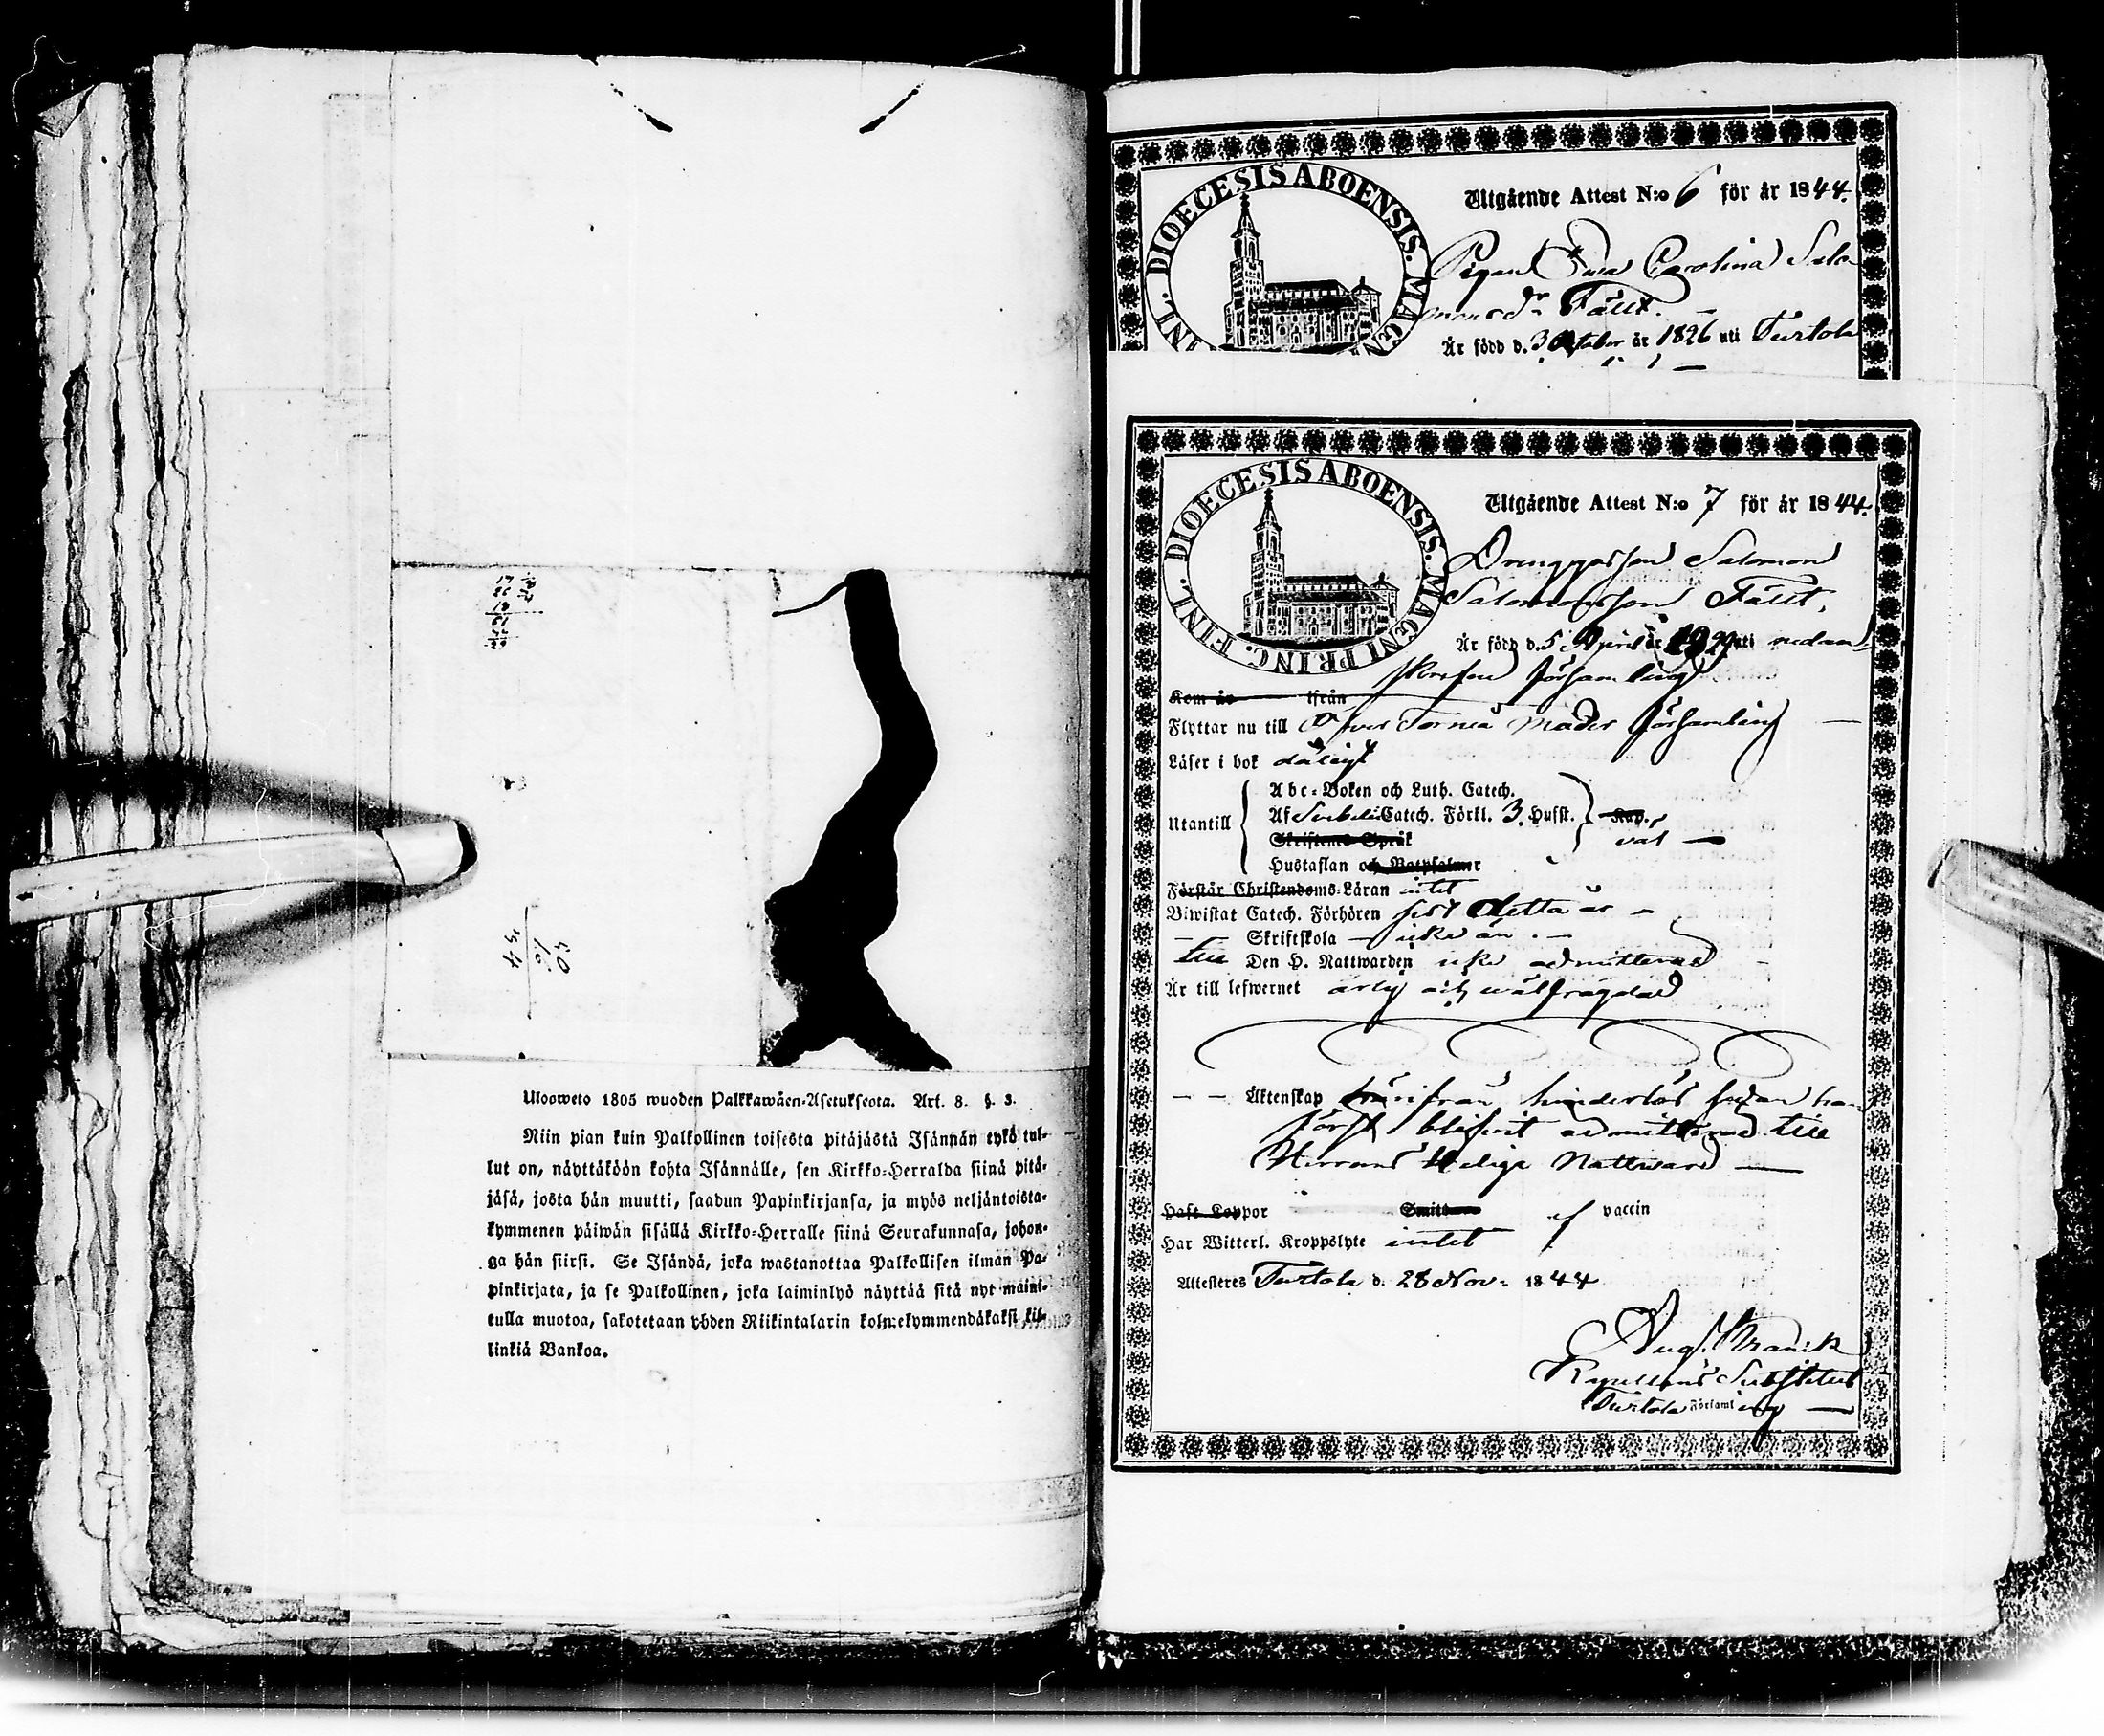 Ulosweto 1805 wuoden Palkkawäen-Asetuksesta. Art. 8. §. 3.
Niin pian kuin Palkollinen toisesta pitäjästä Isännän tykö tul-
lut on, näyttäköön kohta Isännälle, sen Kirkko-Herralda siinä pitä-
jäsä, josta hän muutti, saadun Papinkirjansa, ja myös neljäntoista-
kymmenen päiwän sisällä Kirkko-Herralle siinä Seurakunnasa, johon-
ga hän siirsi. Se Isändä, joka wastanottaa Palkollisen ilman Pa-
pinkirjata, ja se Palkollinen, joka laiminlyö näyttää sitä nyt maini-
tulla muotoa, sakotetaan yhden Riikintalarin kolmekymmendäkaksi kil-
linkiä Bankoa.
DIOECESIS ABOENSIS. MAGNI
FINL.
Utgående Attest N:o 6 för år 1844.
Pigan Eva Carolina Salo
monsdr Fält.
Är född d. 3 October år 1826 uti Turtola
DIOECESIS ABOENSIS. MAGNI PRINC. FINL.
Utgående Attest N:o 7 för år 1844.
Drenggossen Salomon
Salomonsson Fält,
Är född d. 5 April år uti nedan
skrefne församling
Kom år ifrån
Flyttar nu till Öfver Torneå Moder församling
Läser i bok dåligt
Abc-Boken och Luth. Catech.
Utantill Af Catech. Förkl. 3. Hufst. Kap.
Skriftens Språk
Hustaflan och Botpsalmer
Förstår Christendoms-Läran intet
Biwistat Catech. Förhören sist detta år
Skriftskola icke än
till Den H. Nattwarden icke admitterad
Är till lefwernet ärlig och wälfrägdad
Äktenskap härifrån hinderlös sedan han
först blifvit admitterad till
Herrans Heliga Nattward
Haft Koppor Smitt af vaccin
Har Witterl. Kroppslyte intet
Attesteres Turtola d. 28 Nov. 1844
Aug.
Kapellans Substitut
Turtola Församling